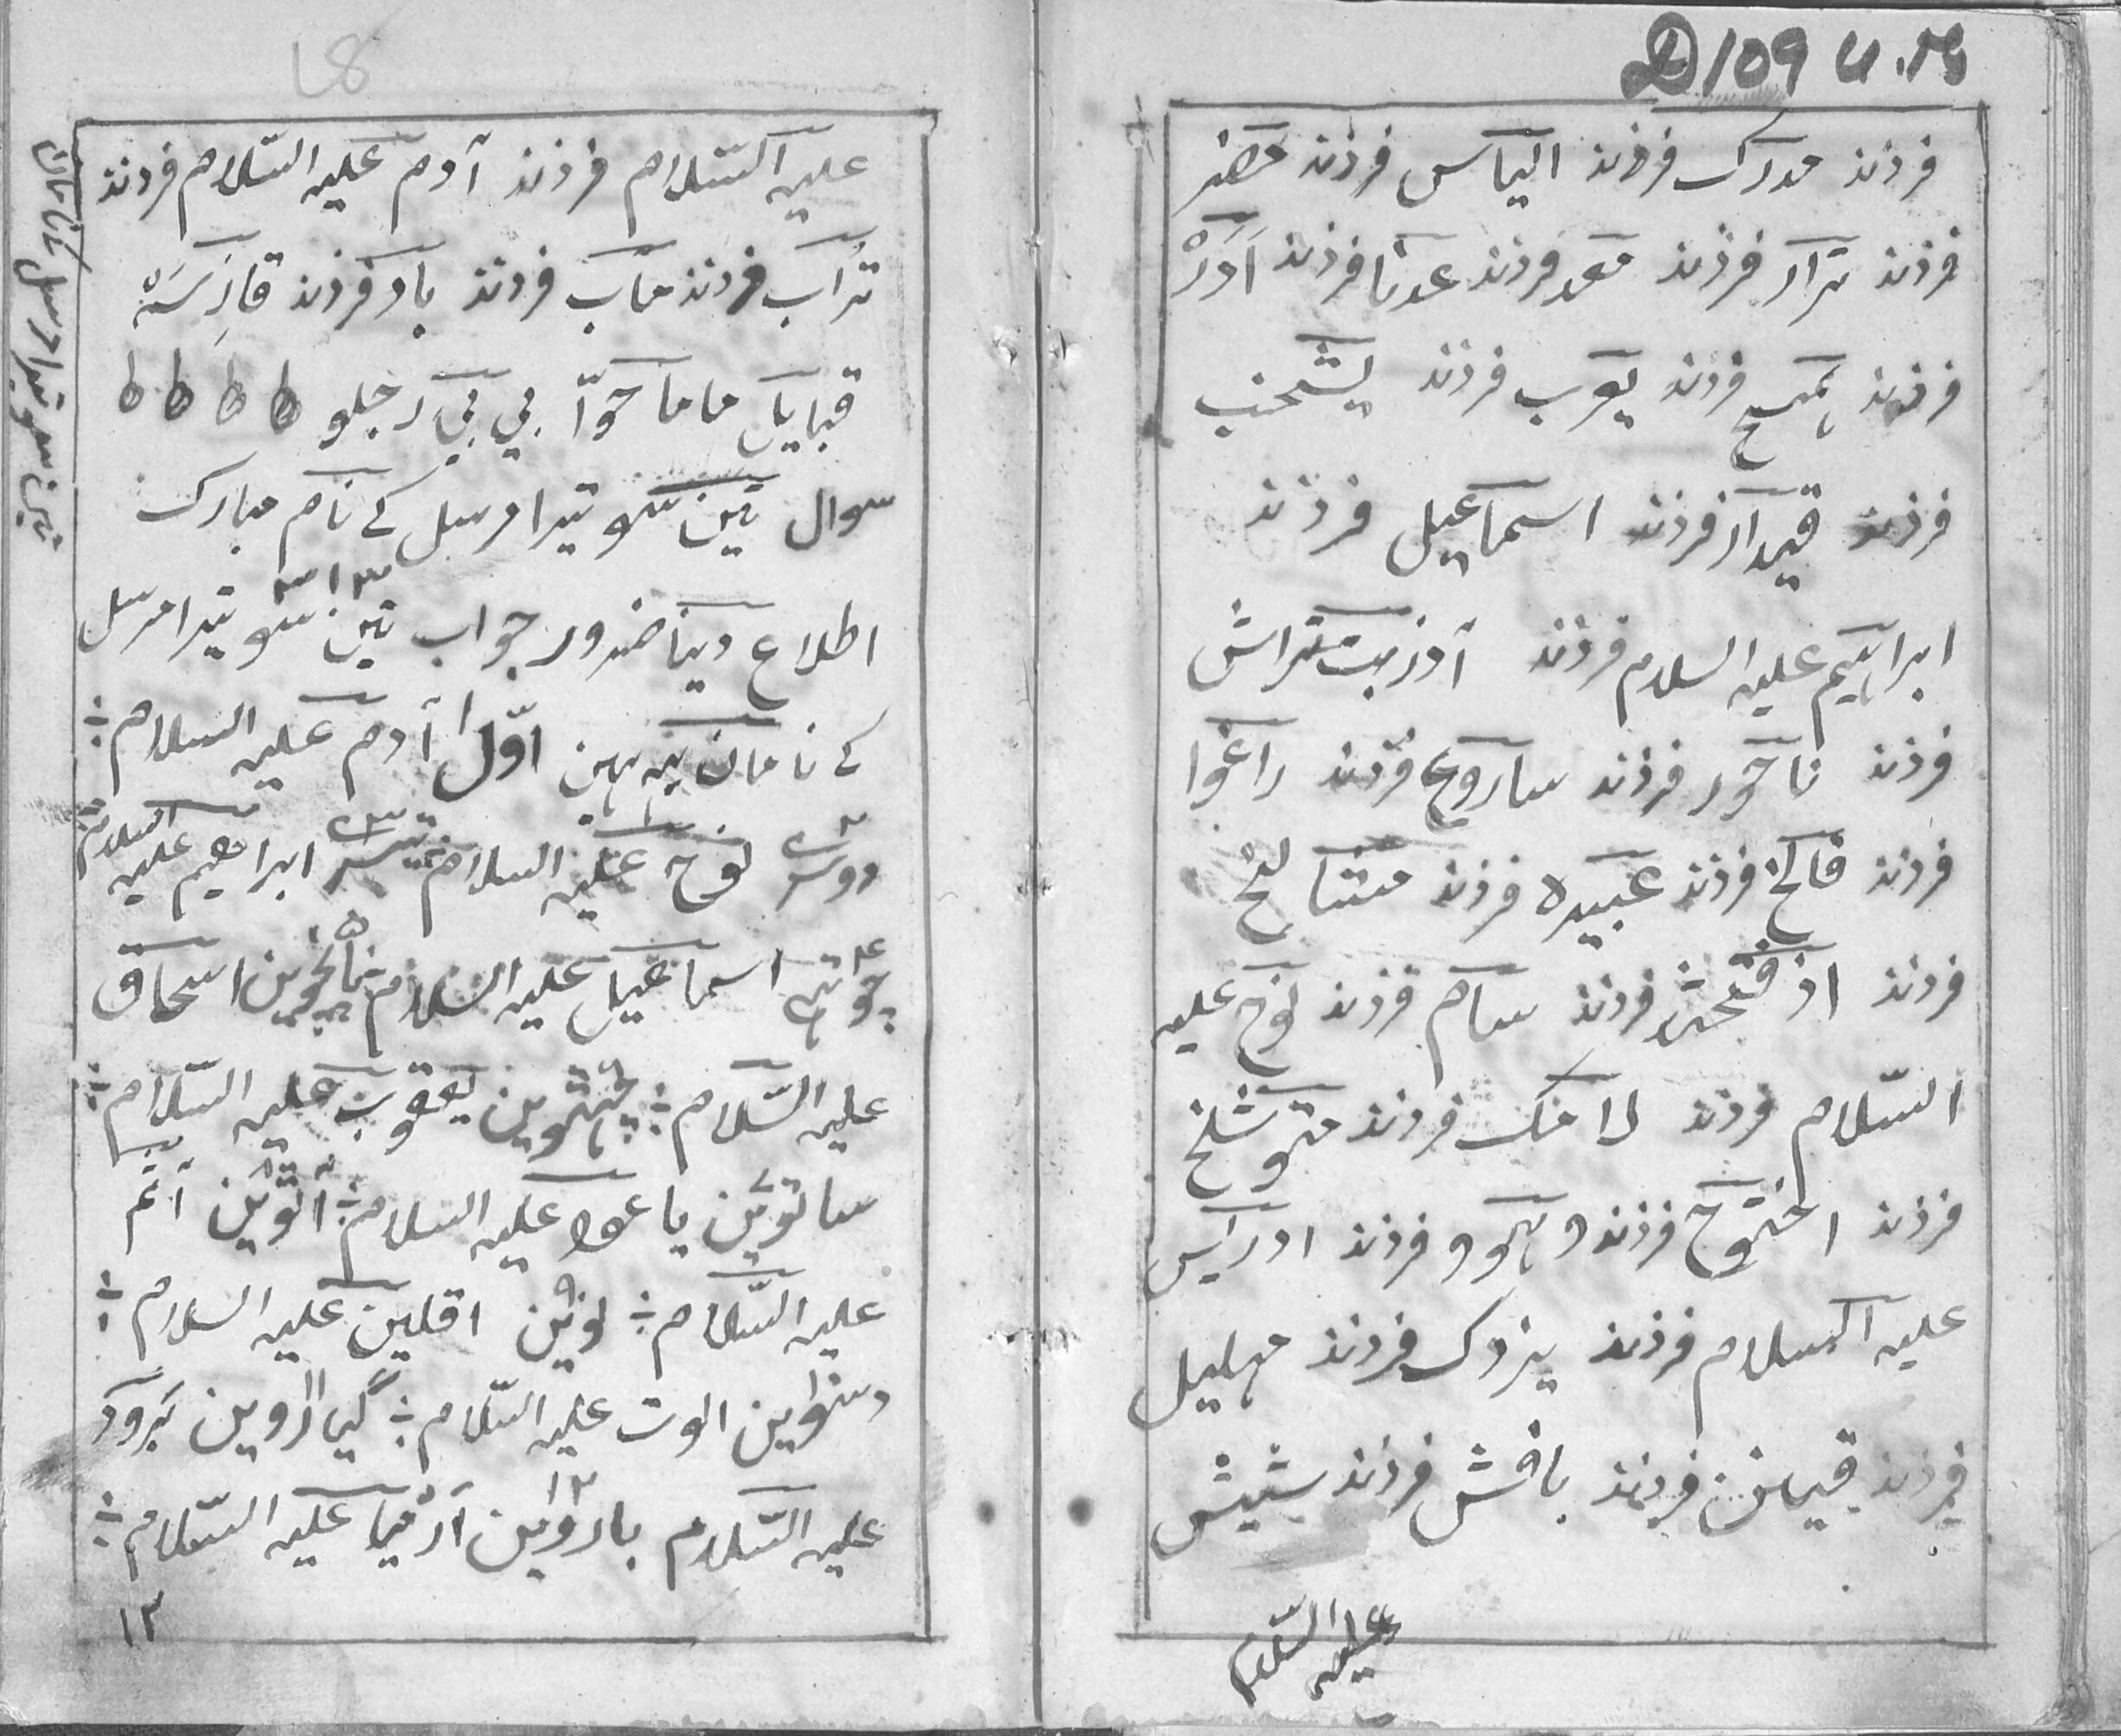 D 109 U.M
فرزند مدرک فرزند الیاس فرزند مضر
فرزند نزار فرزند معد فرزند عدنا فرزند اَدَدْ
فرزند ہمسع فرزند یعرب فرزند یشحنب
فرزند قیدار فرزند اسماعیل فرزند
ابراہیم علیہ السلام فرزند آذر بت تراش
فرزند ناحور فرزند ساروع فرزند راغوا
فرزند فالخ فرزند عبیرہ فرزند متشالخ
فرزند ارفخشد فرزند سام فرزند نوح علیہ
السّلام فرزند لامک فرزند متوشلخ
فرزند اخنوح فرزند وہود فرزند ادریس
علیہ السلام فرزند یزدک فرزند مہلیل
فرزند قینن فرزند بافش فرزند شیش
علیہ السّلام
18
علیہ السّلام فرزند آدم علیہ السّلام فرزند
تُراب فرزند ماب فرزند باد فرزند قازِسَہْ
قبایل ماما حوّا بی بی رجلو ط ط ط ط
سوال تین سو تیرا مرسل کے نام مبارک
اطلاع دینا ضرور جواب تین سو تیرا مرسل ۳۱۳
کے نامان یہ ہین اوّل ۱ آدم علیہ السلام ÷
دوسرے ۲ نوح علیہ السلام تیسرے ۳ ابراھیم علیہ السلام
چوتھے ۴ اسماعیل علیہ السلام پانچوین ۵ اسحاق
علیہ السّلام ÷ چھٹوین ۶ یعقوب علیہ السّلام ÷
ساتوین ۷ یاعود علیہ السلام ÷ اٹوین ۸
علیہ السّلام ÷ نوین ۹ اقلین علیہ السلام ÷
دسوین ۱۰ الوت علیہ السّلام ÷ گیاروین ۱۱
علیہ السّلام بارَوین ۱۲ آرْمیا علیہ السّلام ÷
۱۳
تین سو تیرا مرسل کے نامان